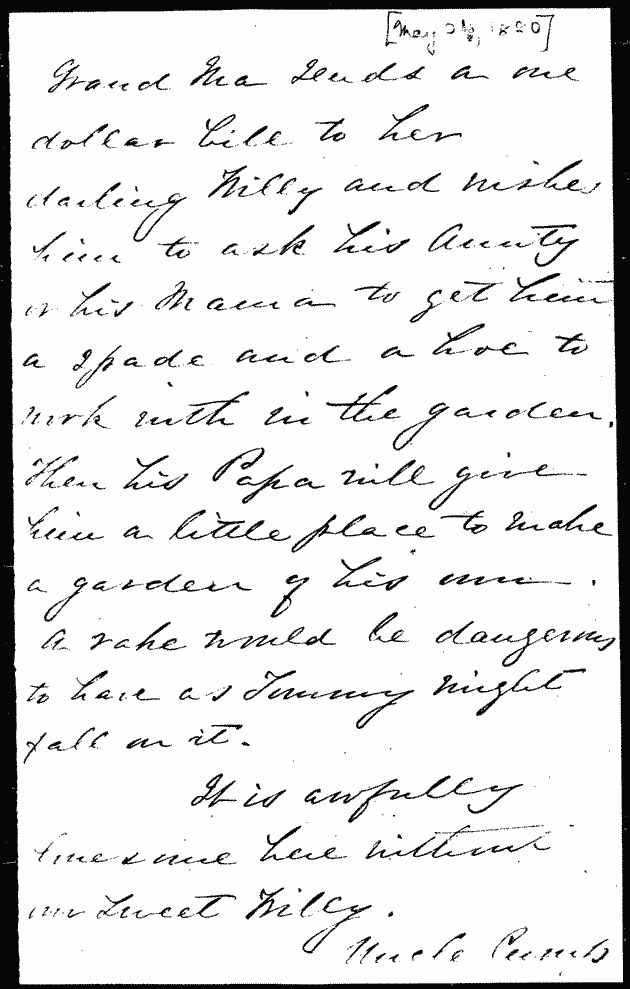 [May 26, 1880]
Grand Ma sends a one
dollar bill to her
darling Willy and wishes
him to ask his Aunty
or his Mama to get him
a spade and a hoe to
work with in the garden.
Then his Papa will give
him a little place to make
a garden of his own.
A rake would be dangerous
to have as Tommy might
fall on it.
It is awfully
lonesome here without
our sweet Willy.
Uncle